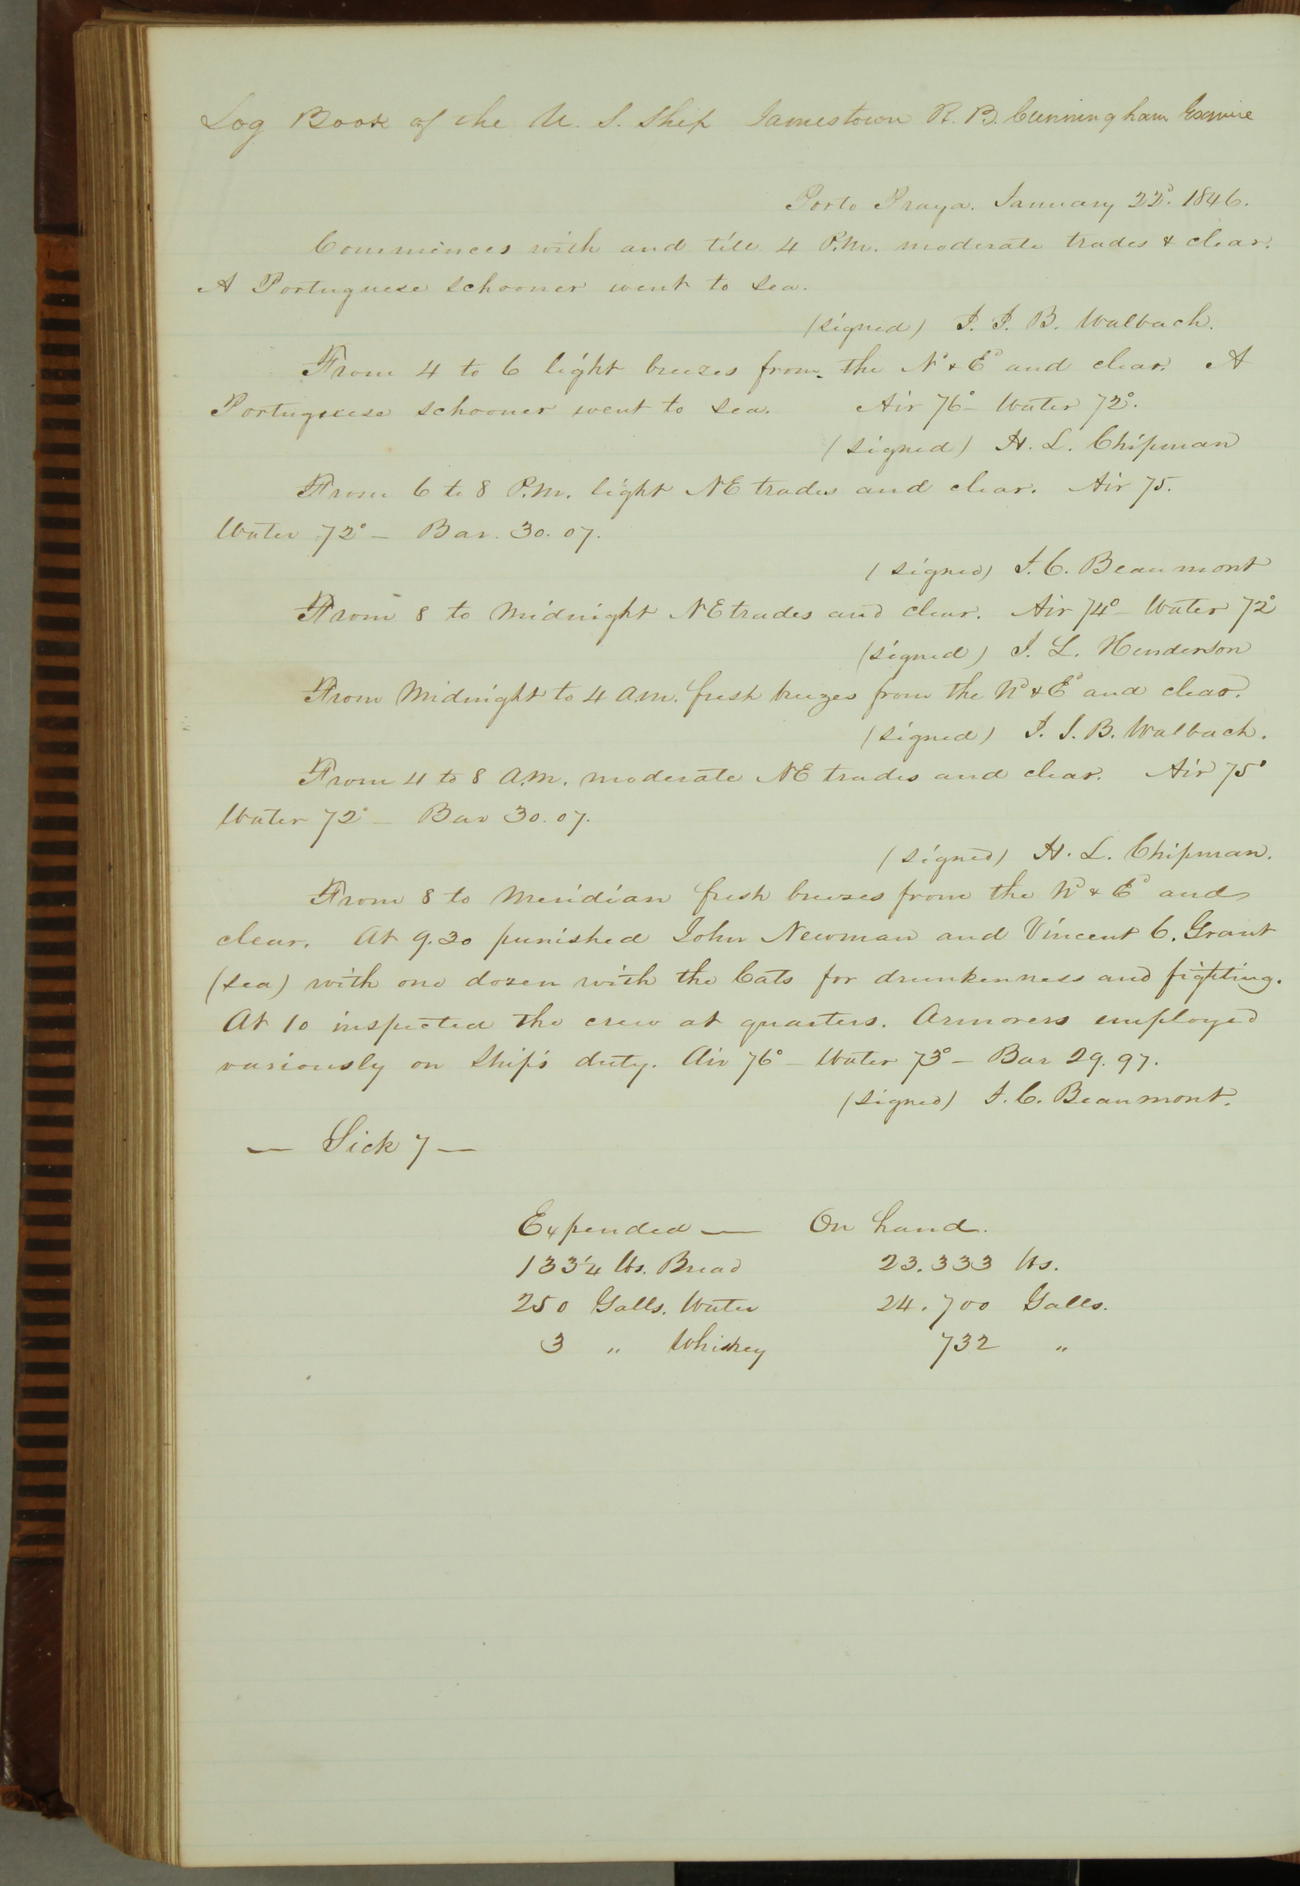 Log Book of the U. S. Ship Jamestown R. B. Cunningham Esquire
Porto Praya. January 22d. 1846.
Commences with and till 4 P.M. moderate trades & clear.
A Portuguese schooner went to sea.
(signed) J. J. B. Walbach.
From 4 to 6 light breezes from the Nd & Ed and clear. A
Portuguese schooner went to sea. Air 76° – Water 72°.
(signed) H. L. Chipman
From 6 to 8 P.M. light NE trades and clear. Air 75.
Water 72° – Bar. 30.07.
(signed) J. C. Beaumont
From 8 to Midnight NE trades and clear. Air 74° – Water 72°
(signed) J. L. Henderson
From Midnight to 4 A.M. fresh breezes from the Nd & Ed and clear.
(signed) J. J. B. Walbach.
From 4 to 8 A.M. moderate NE trades and clear. Air 75°
Water 72° – Bar 30.07.
(signed) H. L. Chipman.
From 8 to Meridian fresh breezes from the Nd & Ed and
clear. At 9.30 punished John Newman and Vincent C. Grant
(sea) with one dozen with the Cats for drunkenness and fighting.
At 10 inspected the crew at quarters. Armorers employed
variously on Ship's duty. Air 76° – Water 73° – Bar 29.97.
(signed) J. C. Beaumont.
— Sick 7 —
Expended — On hand.
133¼ lbs. Bread 23.333 lbs.
250 Galls. Water 24.700 Galls.
3 " Whiskey 732 "